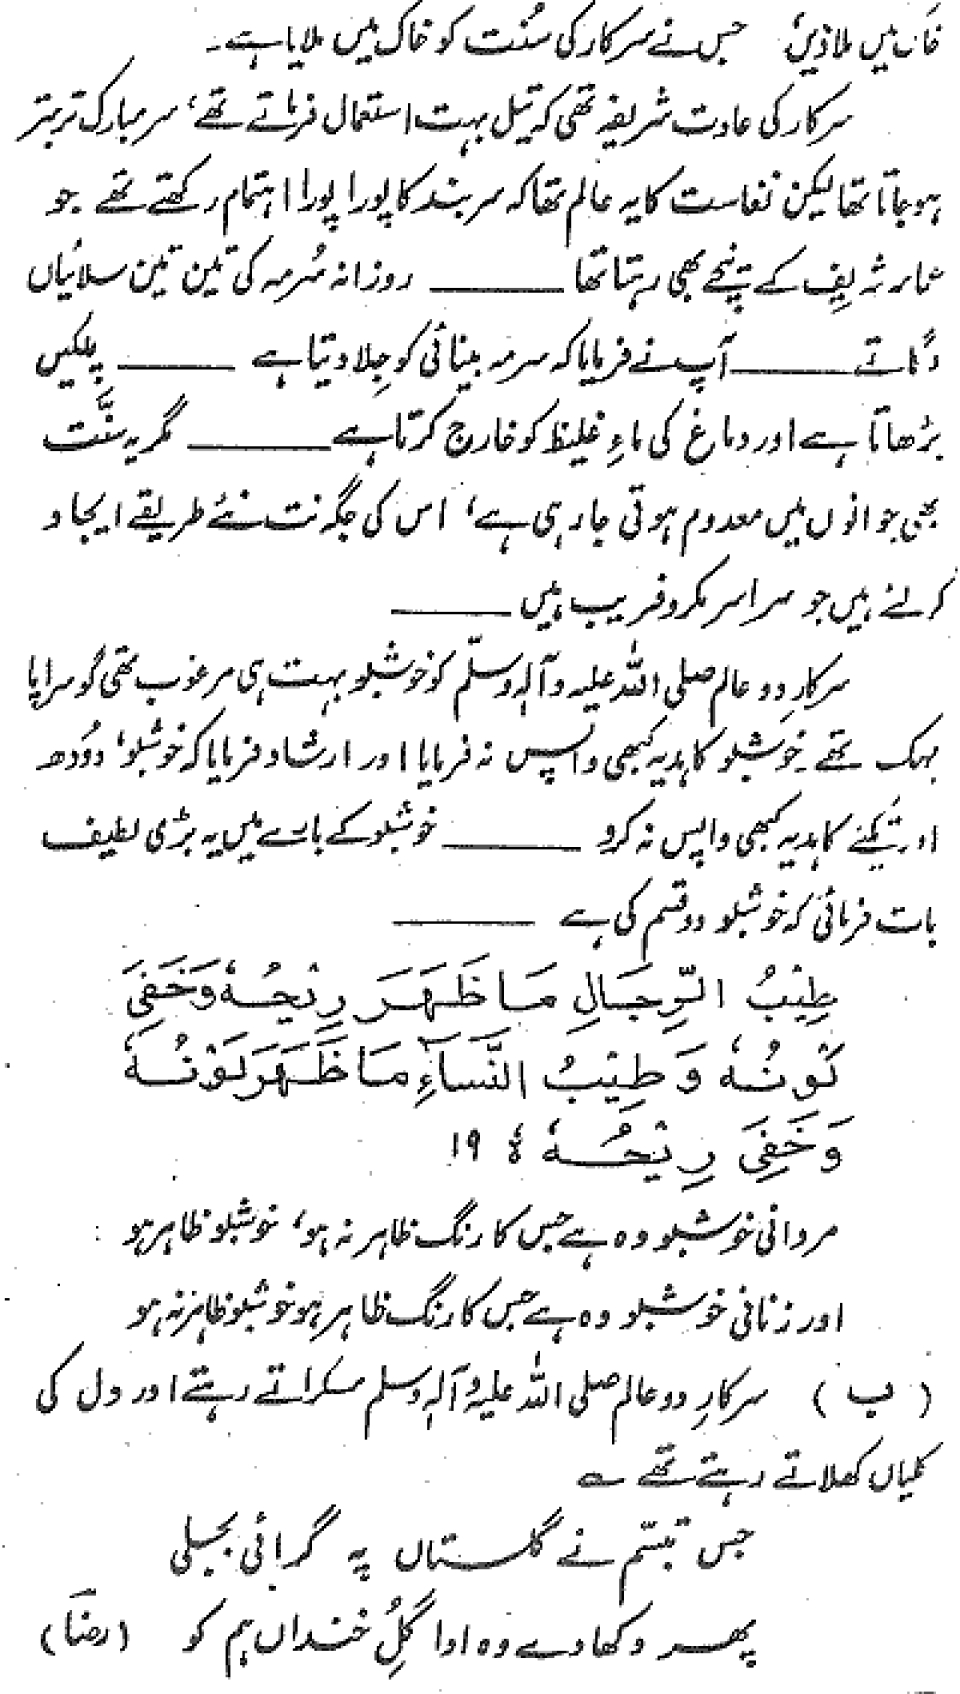 خاک میں ملا دیں جس نے سرکار کی سُنت کو خاک میں ملایا ہے۔
سرکار کی عادت شریفہ تھی کہ تیل بہت استعمال فرماتے تھے، سر مبارک تربتر
ہو جاتا تھا لیکن نفاست کا یہ عالم تھا کہ سر بند کا پورا پورا اہتمام رکھتے تھے جو
عمامہ شریف کے نیچے بھی رہتا تھا ـــــــــ روزانہ سُرمہ کی تین تین سلائیاں
لگاتے ـــــــــ آپ نے فرمایا کہ سرمہ بینائی کو جِلا دیتا ہے ـــــــــ پلکیں
بڑھاتا ہے اور دماغ کی ماءِ غلیظ کو خارج کرتا ہے ـــــــــ مگر یہ سنَّت
بھی جوانوں میں معدوم ہوتی جا رہی ہے، اس کی جگہ نت نئے طریقے ایجاد
کرلئے ہیں جو سراسر مکر و فریب ہیں ـــــــــ
سرکارِ دو عالم صلی اللہ علیہ وآلہٖ وسلّم کو خوشبو بہت ہی مرغوب تھی گو سراپا
مہک تھے۔ خوشبو کا ہدیہ کبھی واپس نہ فرمایا اور ارشاد فرمایا کہ خوشبو، دُودھ
اور تکئے کا ہدیہ کبھی واپس نہ کرو ـــــــــ خوشبو کے بارے میں یہ بڑی لطیف
بات فرمائی کہ خوشبو دو قسم کی ہے ـــــــــ
طِيْبُ الرِّجَالِ مَا ظَهَرَ رِيْحُهٗ وَخَفِيَ
لَوْنُهٗ وَ طِيْبُ النِّسَآءِ مَا ظَهَرَ لَوْنُهٗ
وَخَفِيَ رِيْحُهٗ ؎ ۱۹
مردانی خوشبو وہ ہے جس کا رنگ ظاہر نہ ہو، خوشبو ظاہر ہو
اور زنانی خوشبو وہ ہے جس کا رنگ ظاہر ہو خوشبو ظاہر نہ ہو
(ب) سرکارِ دو عالم صلی اللہ علیہ وآلہٖ وسلم مسکراتے رہتے اور دل کی
کلیاں کھلاتے رہتے تھے ؎
جس تبسّم نے گلستاں پہ گرائی بجلی
پھر دکھا دے وہ ادا گلُِ خنداں ہم کو (رضاؔ)